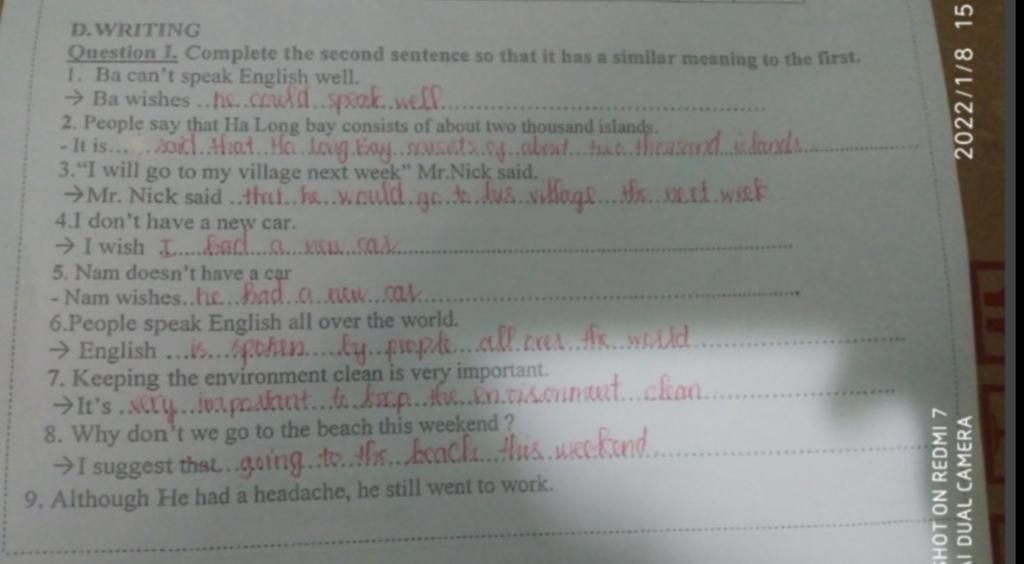 D.WRITING
Question I. Complete the second sentence so that it has a similar meaning to the first.
1. Ba can't speak English well.
→ Ba wishes ..he could speak well
2. People say that Ha Long bay consists of about two thousand islands.
- It is..... said that Ha Long Bay consists of about two thousand islands
3."I will go to my village next week" Mr.Nick said.
→Mr. Nick said ..that he would go to his village the next week
4.I don't have a new car.
→ I wish I had a new car
5. Nam doesn't have a car
- Nam wishes..he had a new car
6.People speak English all over the world.
→ English ...is spoken by people all over the world
7. Keeping the environment clean is very important.
→It's .very important to keep the environment clean
8. Why don't we go to the beach this weekend ?
→I suggest that...going to the beach this weekend
9. Although He had a headache, he still went to work.
2022/1/8 15
SHOT ON REDMI 7
AI DUAL CAMERA